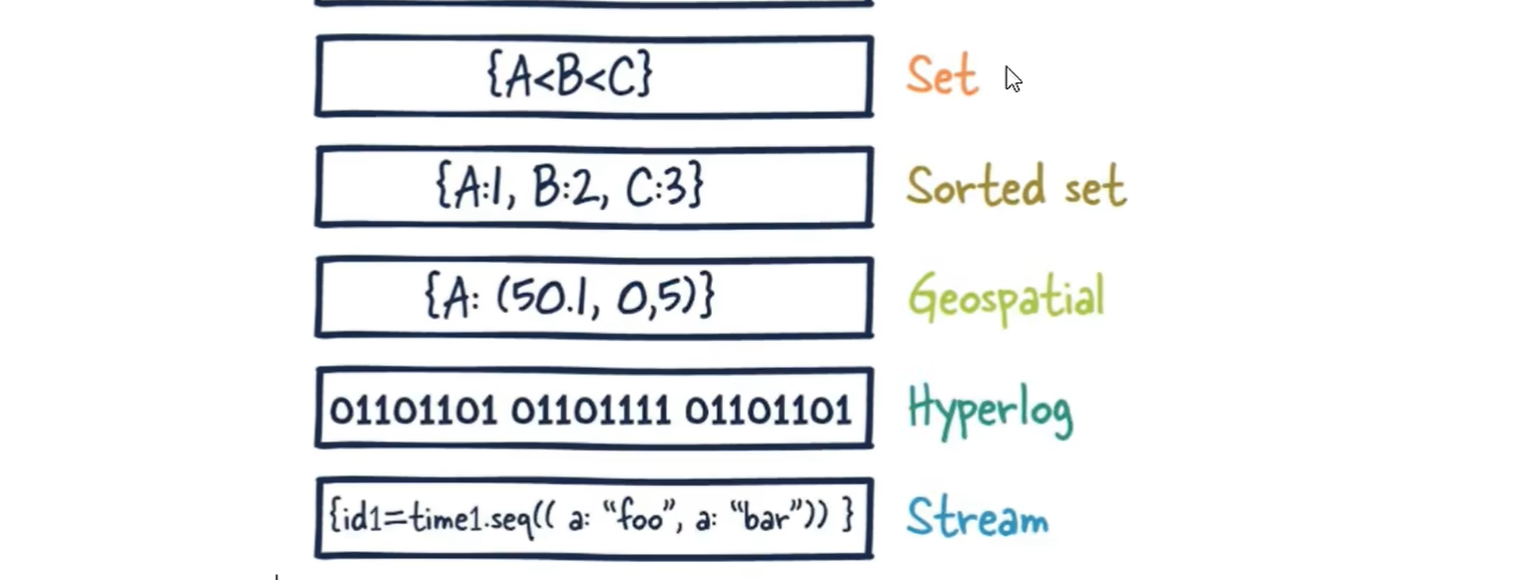 {A<B<C} Set
{A:1, B:2, C:3} Sorted set
{A: (50.1, 0,5)} Geospatial
01101101 01101111 01101101 Hyperlog
{id1=time1.seq(( a: “foo”, a: “bar”)) } Stream